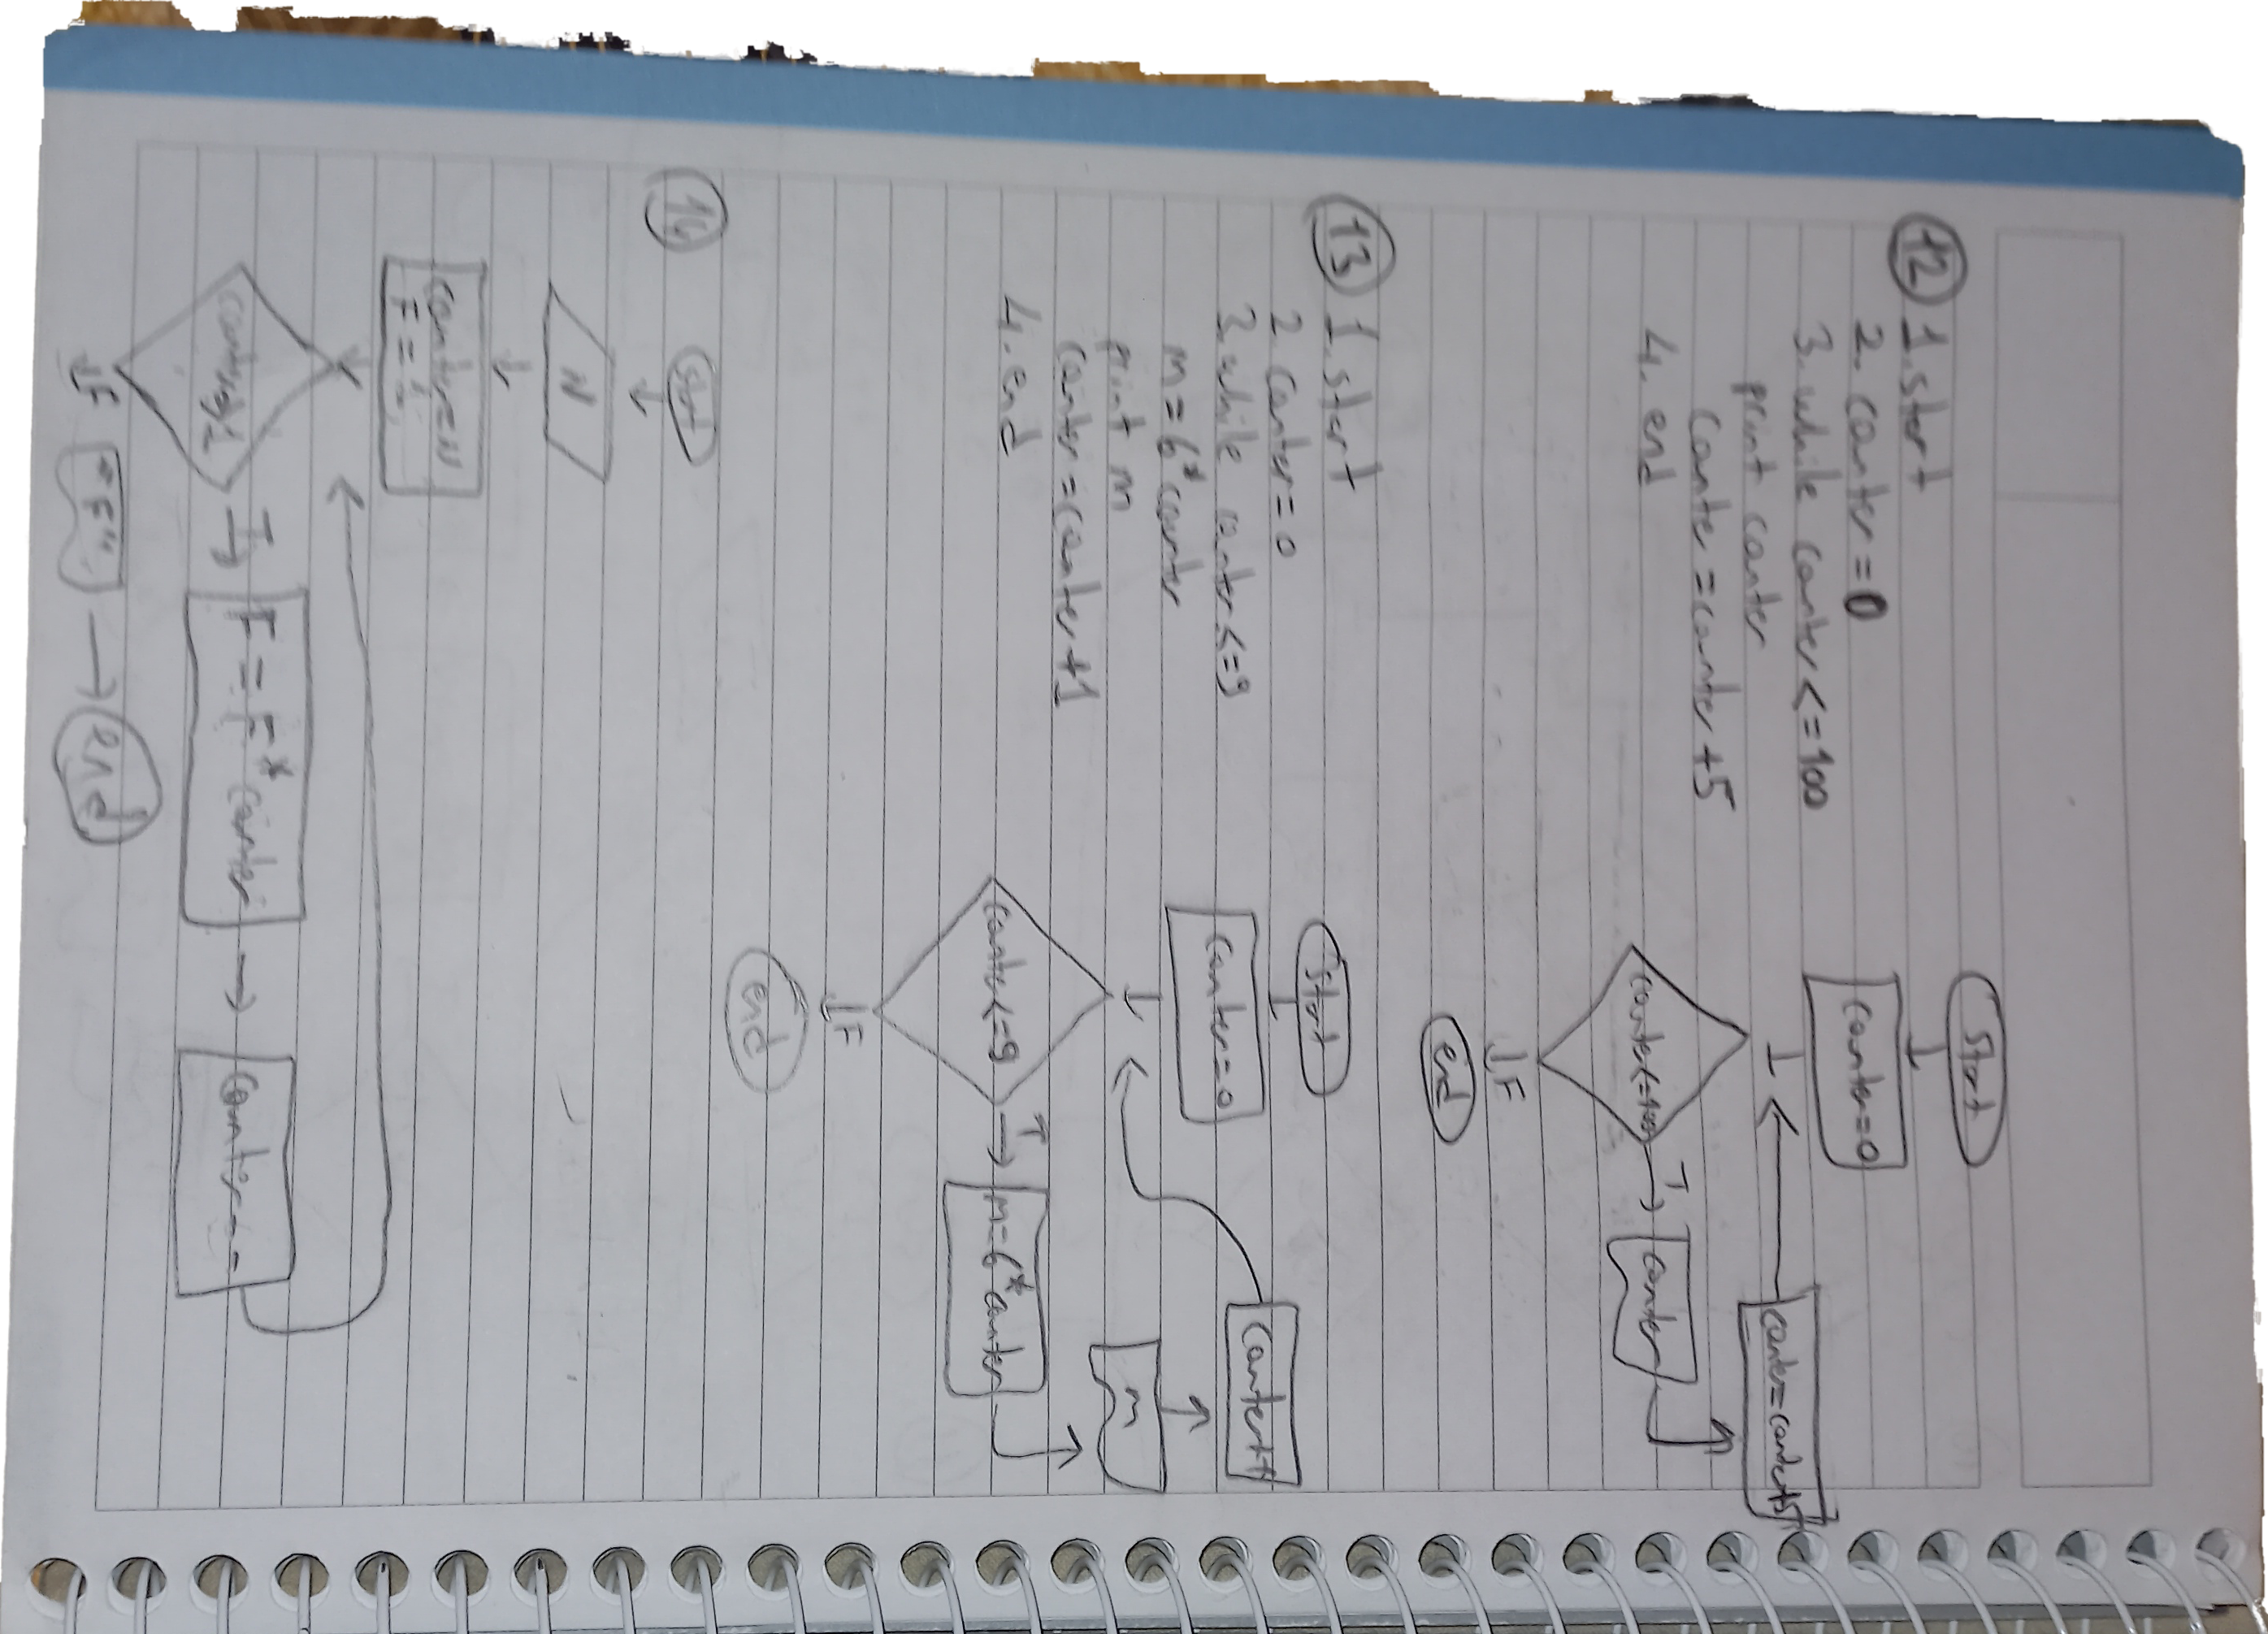 12 1. start
2. conter=0
3. while conter<=100
print conter
conter=conter+5
4. end
start
conter=0
conter<=100
T
conter
conter=conter+5
F
end
13 1. start
2. conter=0
3. while conter<=9
m=6*conter
print m
conter=conter+1
4. end
start
conter=0
conter<=9
T
m=6*conter
m
conter++
F
end
start
N
conter=N
F=1
T
F=F*conter
conter--
F
"F"
end